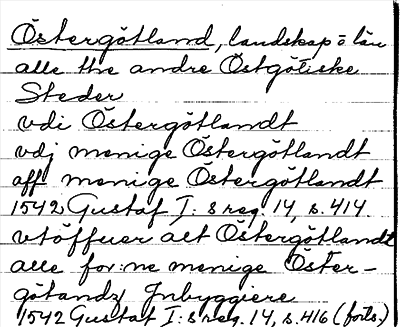 Östergötland, landskap o län
alle the andre Östgötiske
Steder
vdi Östergötlandt
vdj menige Östergötlandt
aff menige Östergötlandt
1542 Gustaf I:s reg. 14, s. 414
vtöffuer alt Östergötlandt
alle for:ne menige Öster-
götandz Jnbyggiere
1542 Gustaf I:s reg. 14, s. 416 (forts.)